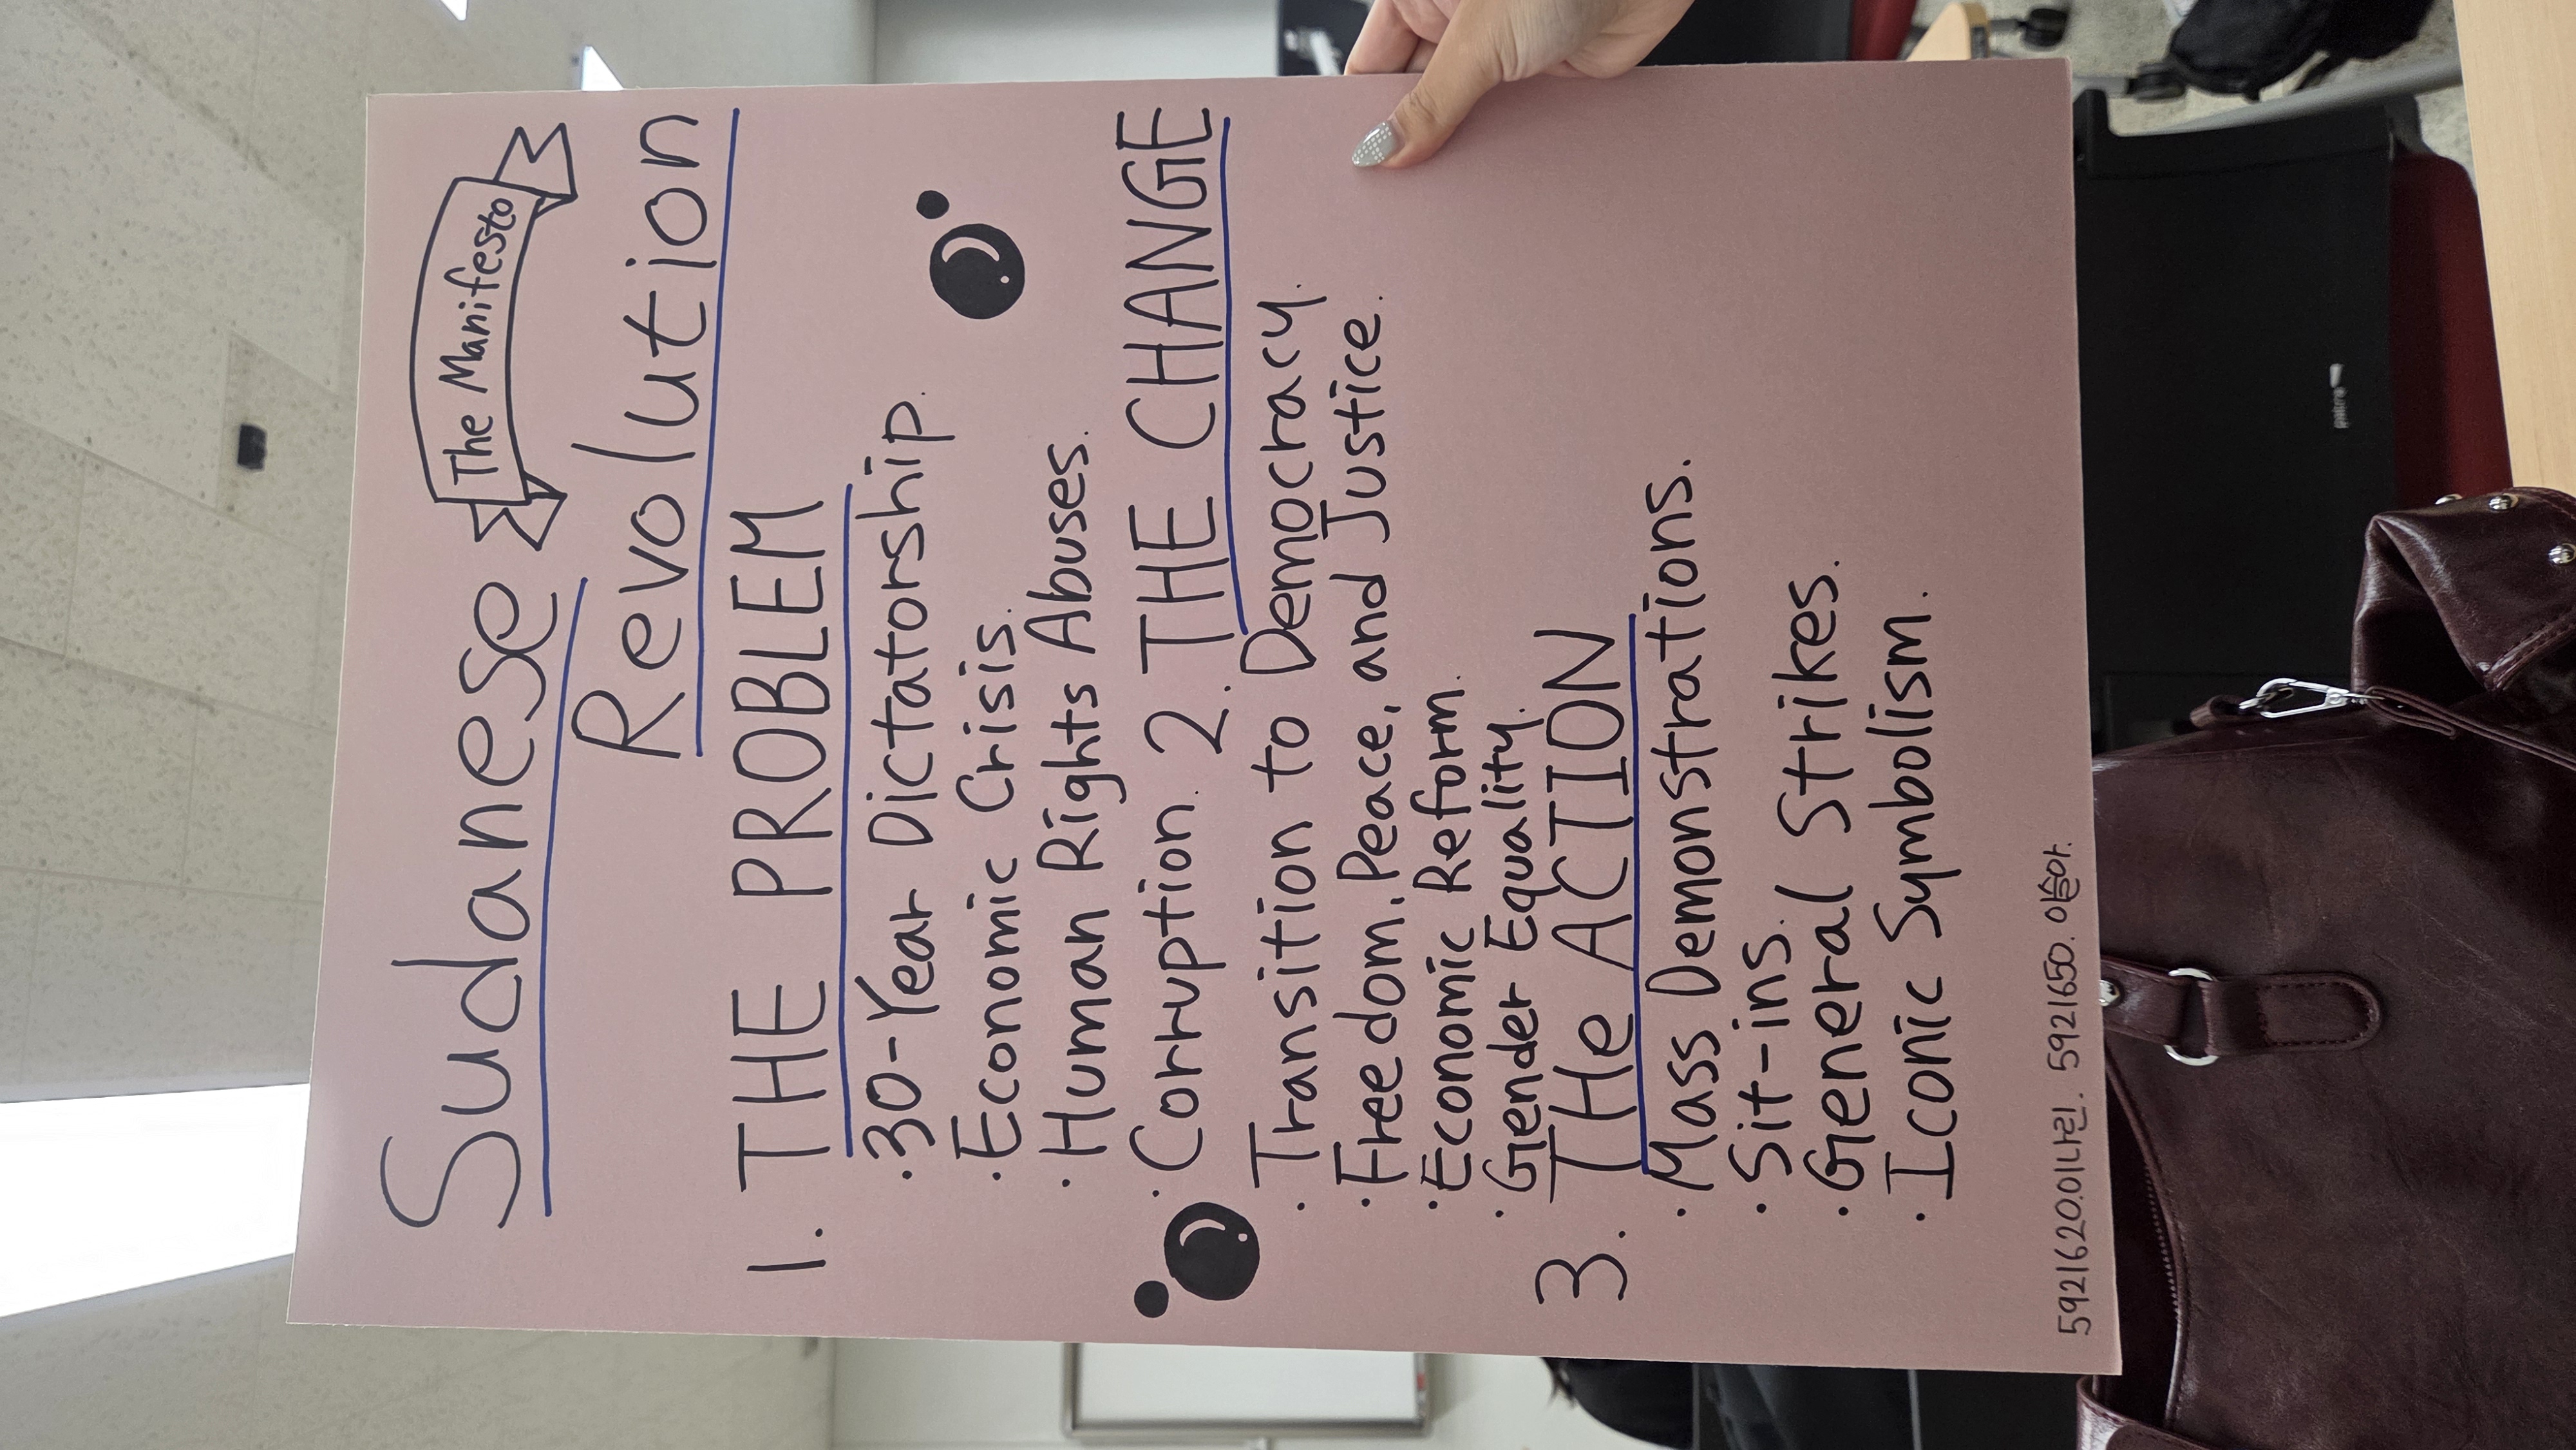 Sudanese
The Manifesto
Revolution
1. THE PROBLEM
·30-Year Dictatorship.
·Economic Crisis.
·Human Rights Abuses.
·Corruption. 2. THE CHANGE
·Transition to Democracy.
·Freedom, Peace, and Justice.
·Economic Reform.
·Gender Equality.
3. THe ACTION
·Mass Demonstrations.
·Sit-ins.
·General Strikes.
·Iconic Symbolism.
5921620.이나린. 5921650. 이슬아.
patra